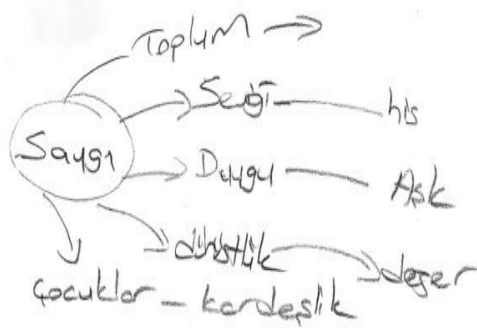 Toplum
Sevgi his
Saygı
Duygu Aşk
dürüstlük değer
Çocuklar - kardeşlik